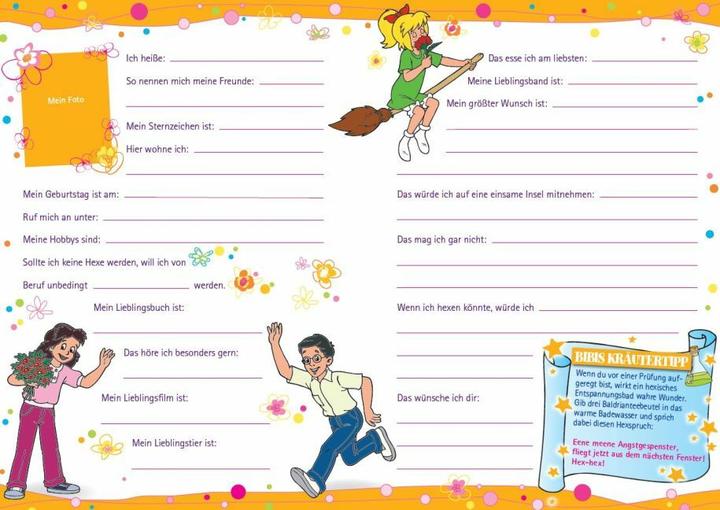 Mein Foto
Ich heiße:
So nennen mich meine Freunde:
Mein Sternzeichen ist:
Hier wohne ich:
Mein Geburtstag ist am:
Ruf mich an unter:
Meine Hobbys sind:
Sollte ich keine Hexe werden, will ich von
Beruf unbedingt werden.
Mein Lieblingsbuch ist:
Das höre ich besonders gern:
Mein Lieblingsfilm ist:
Mein Lieblingstier ist:
Das esse ich am liebsten:
Meine Lieblingsband ist:
Mein größter Wunsch ist:
Das würde ich auf eine einsame Insel mitnehmen:
Das mag ich gar nicht:
Wenn ich hexen könnte, würde ich
Das wünsche ich dir:
BIBIS KRÄUTERTIPP
Wenn du vor einer Prüfung auf-
geregt bist, wirkt ein hexisches
Entspannungsbad wahre Wunder.
Gib drei Baldrianteebeutel in das
warme Badewasser und sprich
dabei diesen Hexspruch:
Eene meene Angstgespenster,
fliegt jetzt aus dem nächsten Fenster!
Hex-hex!